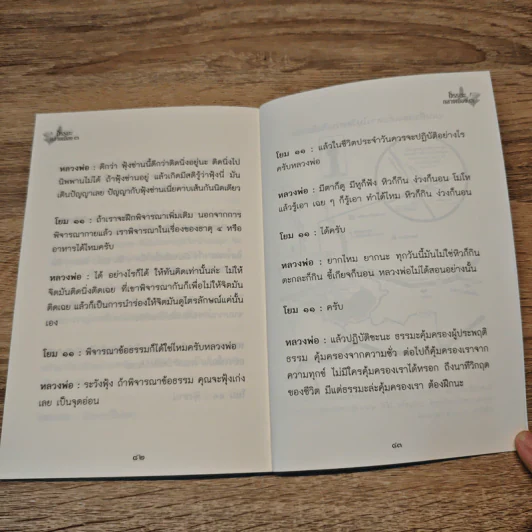 หลวงพ่อ : ดีกว่า ฟุ้งซ่านนี้ดีกว่าติดนิ่งอยู่นะ ติดนิ่งไป
นิพพานไม่ได้ ถ้าฟุ้งซ่านอยู่ แล้วเกิดมีสติรู้ว่าฟุ้งนี่ มัน
เดินปัญญาเลย ปัญญากับฟุ้งซ่านเนี่ยคาบเส้นกันนิดเดียว
โยม ๑๑ : ถ้าเราจะฝึกพิจารณาเพิ่มเติม นอกจากการ
พิจารณากายแล้ว เราพิจารณาในเรื่องของธาตุ ๔ หรือ
อาหารได้ไหมครับ
หลวงพ่อ : ได้ อย่างไรก็ได้ ให้ทันคิดเท่านั้นล่ะ ไม่ให้
จิตมันติดนิ่งติดเฉย ที่เขาพิจารณากันก็เพื่อไม่ให้จิตมัน
ติดเฉย แล้วก็เป็นการนำร่องให้จิตมันดูไตรลักษณ์แค่นั้น
เอง
โยม ๑๑ : พิจารณาข้อธรรมก็ได้ใช่ไหมครับหลวงพ่อ
หลวงพ่อ : ระวังฟุ้ง ถ้าพิจารณาข้อธรรม คุณจะฟุ้งเก่ง
เลย เป็นจุดอ่อน
๔๒
โยม ๑๑ : แล้วในชีวิตประจำวันควรจะปฏิบัติอย่างไร
ครับหลวงพ่อ
หลวงพ่อ : มีตาก็ดู มีหูก็ฟัง หิวก็กิน ง่วงก็นอน โมโห
แล้วรู้เอา เฉย ๆ ก็รู้เอา ทำได้ไหม หิวก็กิน ง่วงก็นอน
โยม ๑๑ : ได้ครับ
หลวงพ่อ : ยากไหม ยากนะ ทุกวันนี้มันไม่ใช่หิวก็กิน
ตะกละก็กิน ขี้เกียจก็นอน หลวงพ่อไม่ได้สอนอย่างนั้น
โยม ๑๑ : ครับ
หลวงพ่อ : แล้วปฏิบัติซะนะ ธรรมะคุ้มครองผู้ประพฤติ
ธรรม คุ้มครองจากความชั่ว ต่อไปก็คุ้มครองเราจาก
ความทุกข์ ไม่มีใครคุ้มครองเราได้หรอก ถึงนาทีวิกฤต
ของชีวิต มีแต่ธรรมะล่ะคุ้มครองเรา ต้องฝึกนะ
๔๓